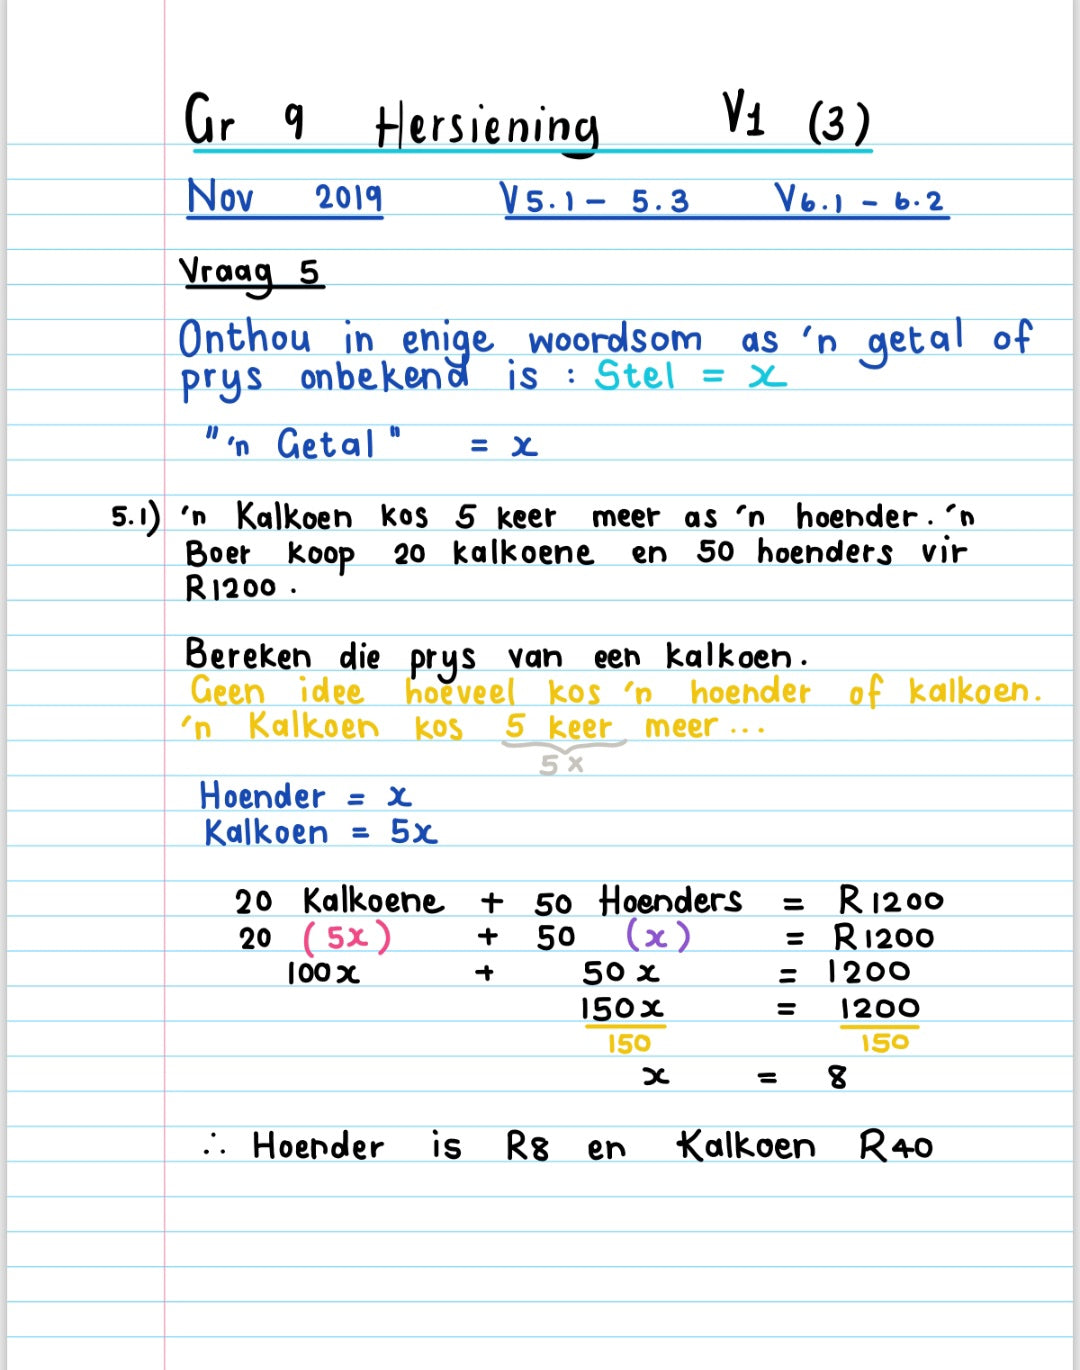 Gr 9 Hersiening V1 (3)
Nov 2019 V5.1 - 5.3 V6.1 - 6.2
Vraag 5
Onthou in enige woordsom as 'n getal of
prys onbekend is : Stel = x
"'n Getal" = x
5.1) 'n Kalkoen kos 5 keer meer as 'n hoender. 'n
Boer koop 20 kalkoene en 50 hoenders vir
R1200.
Bereken die prys van een kalkoen.
Geen idee hoeveel kos 'n hoender of kalkoen.
'n Kalkoen kos 5 keer meer ...
5x
Hoender = x
Kalkoen = 5x
20 Kalkoene + 50 Hoenders = R1200
20 (5x) + 50 (x) = R1200
100x + 50x = 1200
150x = 1200
150 150
x = 8
∴ Hoender is R8 en Kalkoen R40